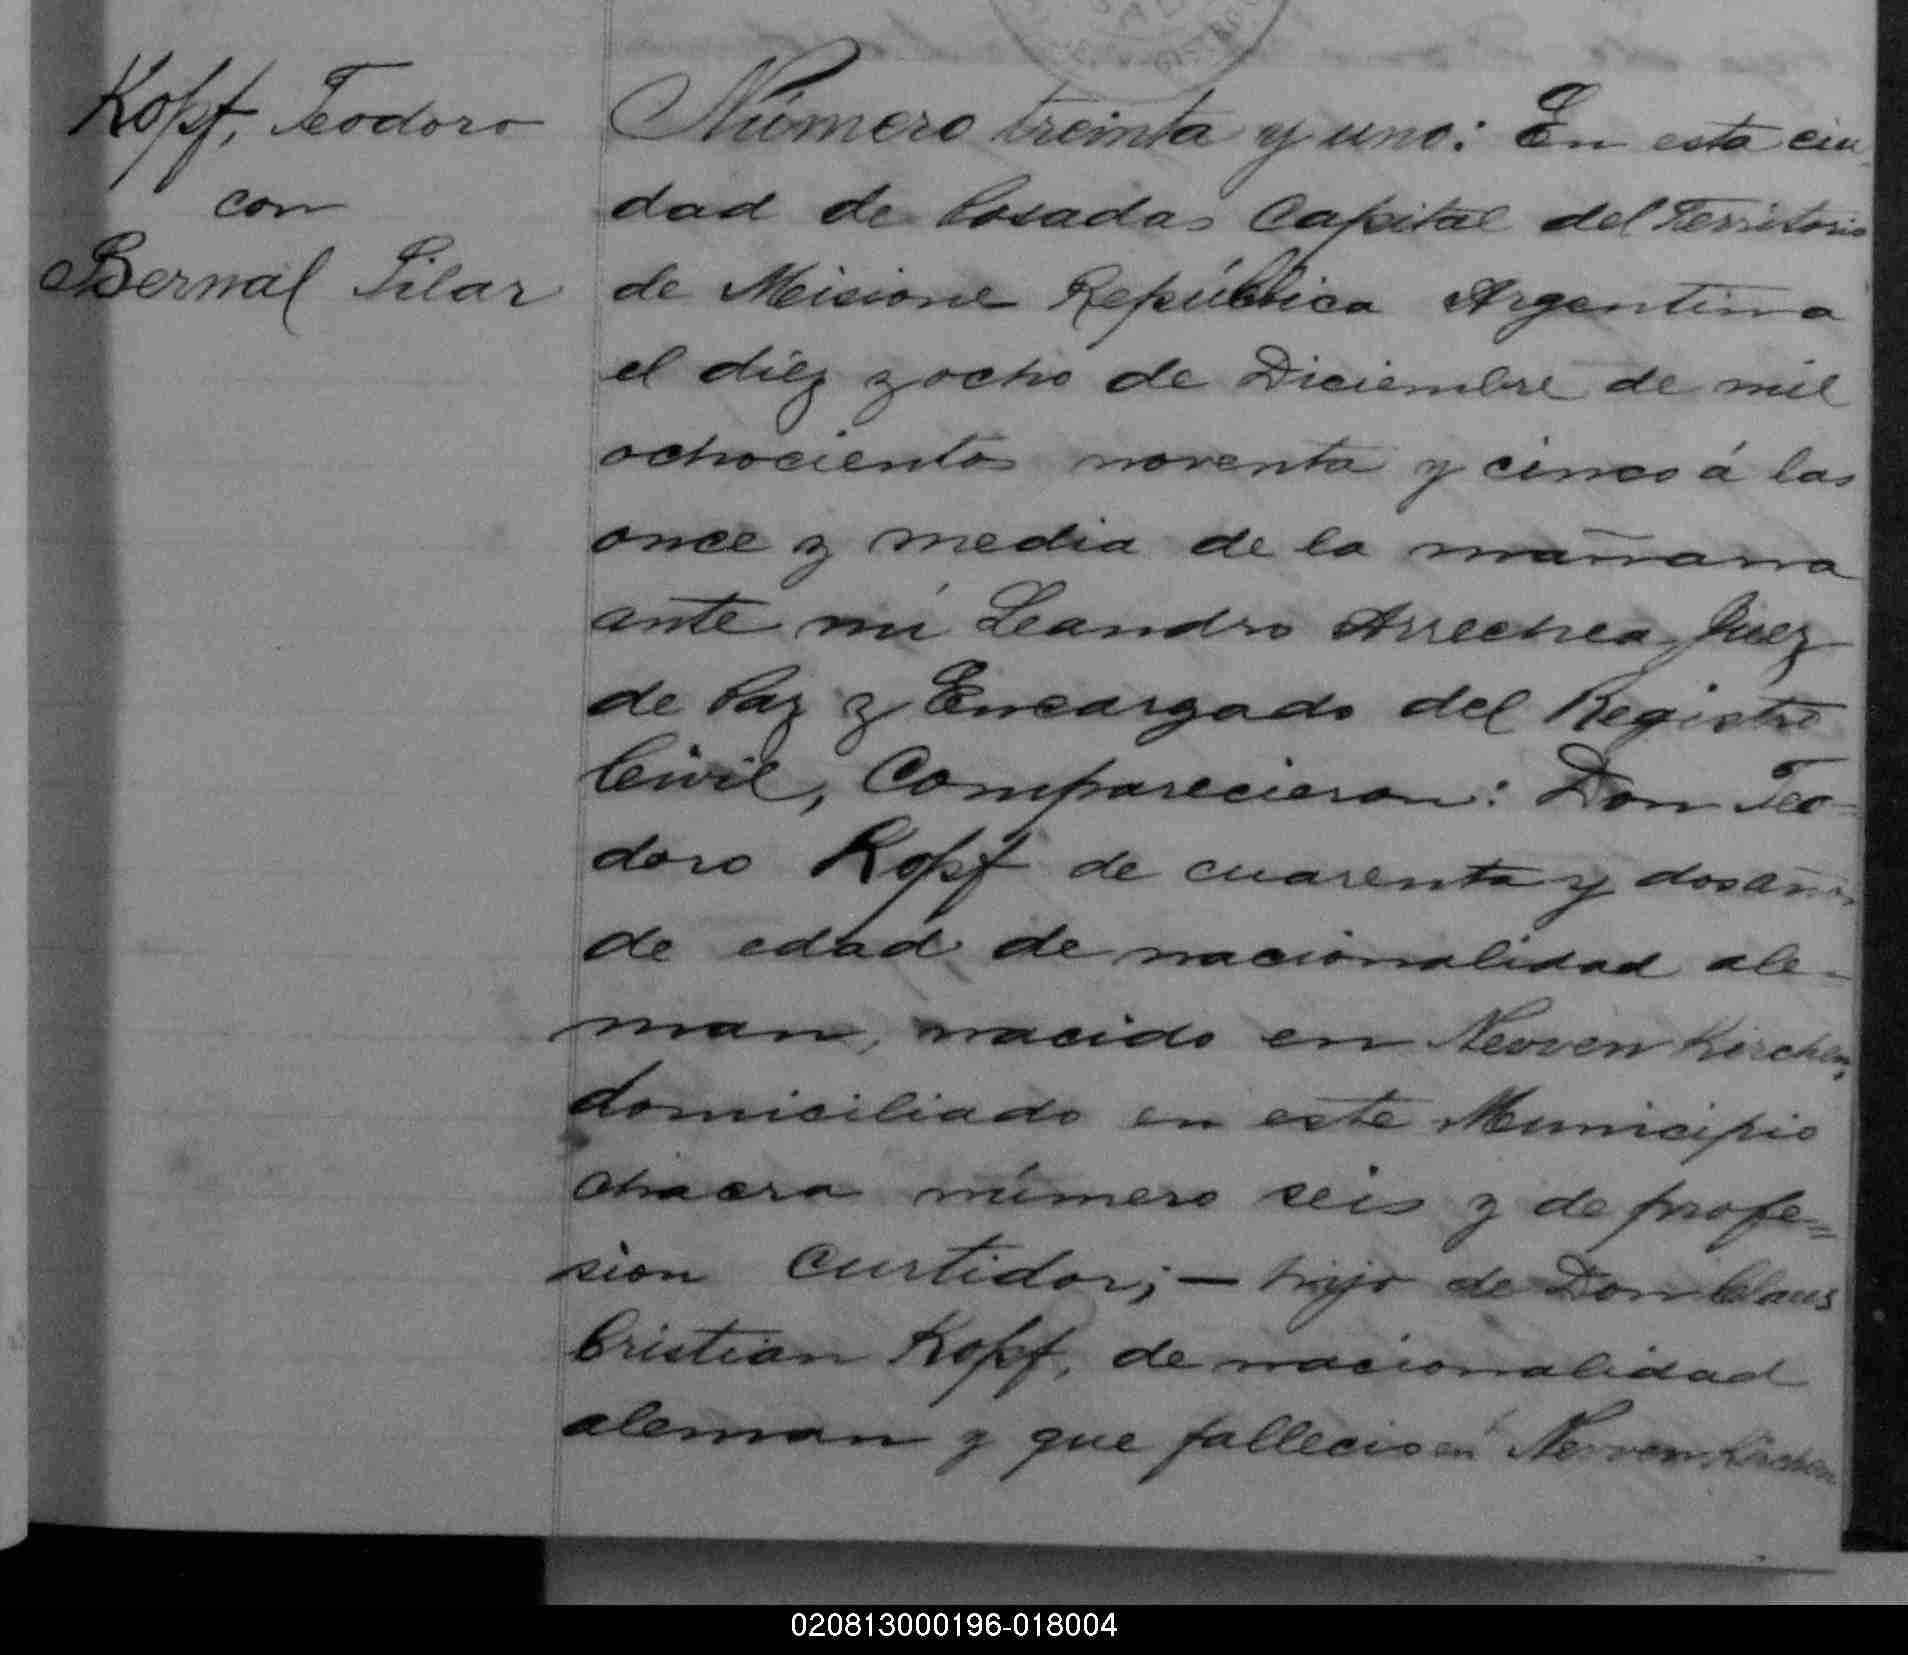 Kopf, Teodoro
con
Bernal Pilar
Número treinta y uno: En esta ciu
dad de Posadas Capital del Territorio
de Misione República Argentina
el diez y ocho de Diciembre de mil
ochocientos noventa y cinco á las
once y media de la mañana
ante mí Leandro Arrechea Juez
de Paz y Encargado del Registro
Civil, Comparecieron: Don Teo-
doro Kopf de cuarenta y dos años
de edad de nacionalidad ale-
man, nacido en Nevven Kirchen,
domiciliado en este Municipio
chacra número seis y de profe=
sion Curtidor; — hijo de Don Claus
Cristian Kopf, de nacionalidad
aleman y que fallecio en Nevven Kirchen
020813000196-018004